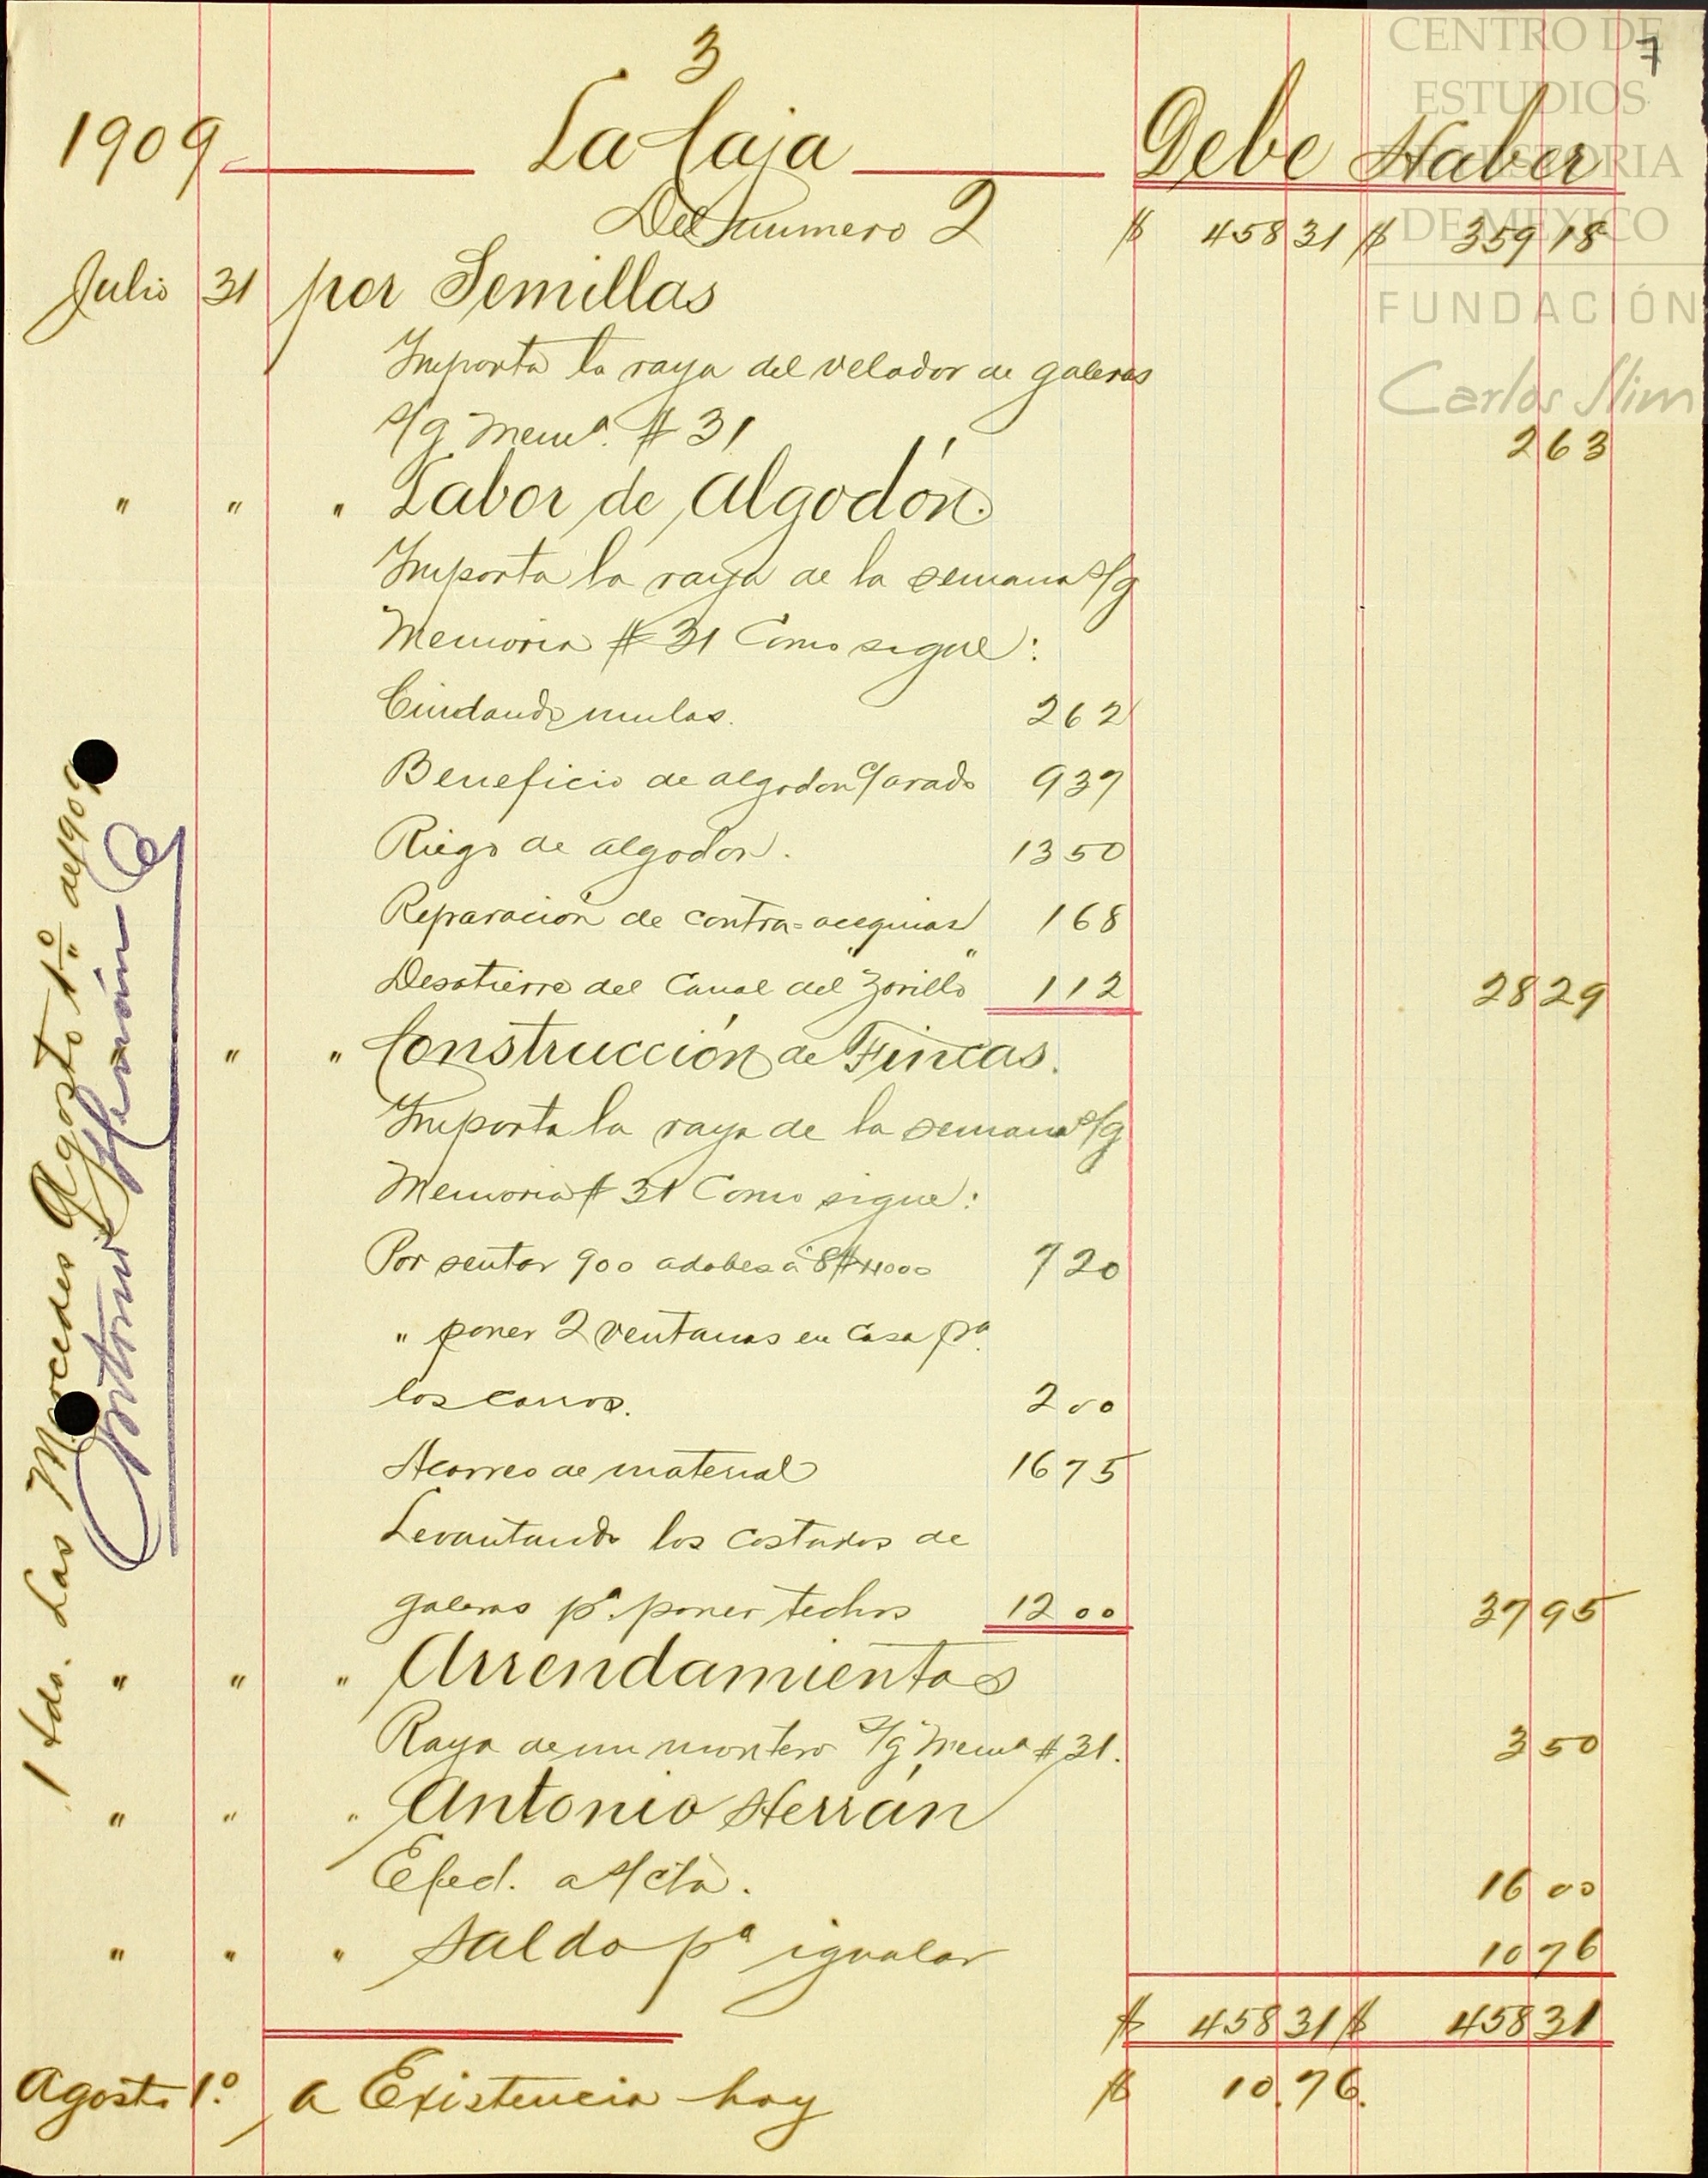 3
7
1909 La Caja Debe Haber
Del numero 2 $ 458 31 $ 359 18
Julio 31 por Semillas
Importa la raya del velador de galeras
s/g Memª. # 31 2 63
" " " Labor de Algodón.
Importa la raya de la semana s/g
Memoria # 31 Como sigue:
Cuidando mulas. 2 62
Beneficio de algodon c/ arado 9 37
Riego de algodon. 13 50
Reparación de contra=acequias 1 68
Desatierre del Canal del "Zorillo" 1 12 28 29
" " Construcción de Fincas.
Importa la raya de la semana s/g
Memoria # 31 Como sigue:
Por sentar 900 adobes a 8$ 1000 7 20
" poner 2 ventanas en Casa pª.
los carros. 2 00
Acarreo de material 16 75
Levantando los costados de
galeras pª. poner techos 12 00 37 95
" " " Arrendamientos
Raya de un montero s/g Memª # 31. 3 50
" " " Antonio Herrán
Efed. a s/ cta. 16 00
" " " Saldo pª igualar 10 76
$ 458 31 $ 458 31
Agosto 1.º a Existencia hoy $ 10.76.
1 tdo. Las Mercedes Agosto 1º de 1909
Antonio Herrán
CENTRO DE
ESTUDIOS
DE HISTORIA
DE MÉXICO
FUNDACIÓN
Carlos Slim